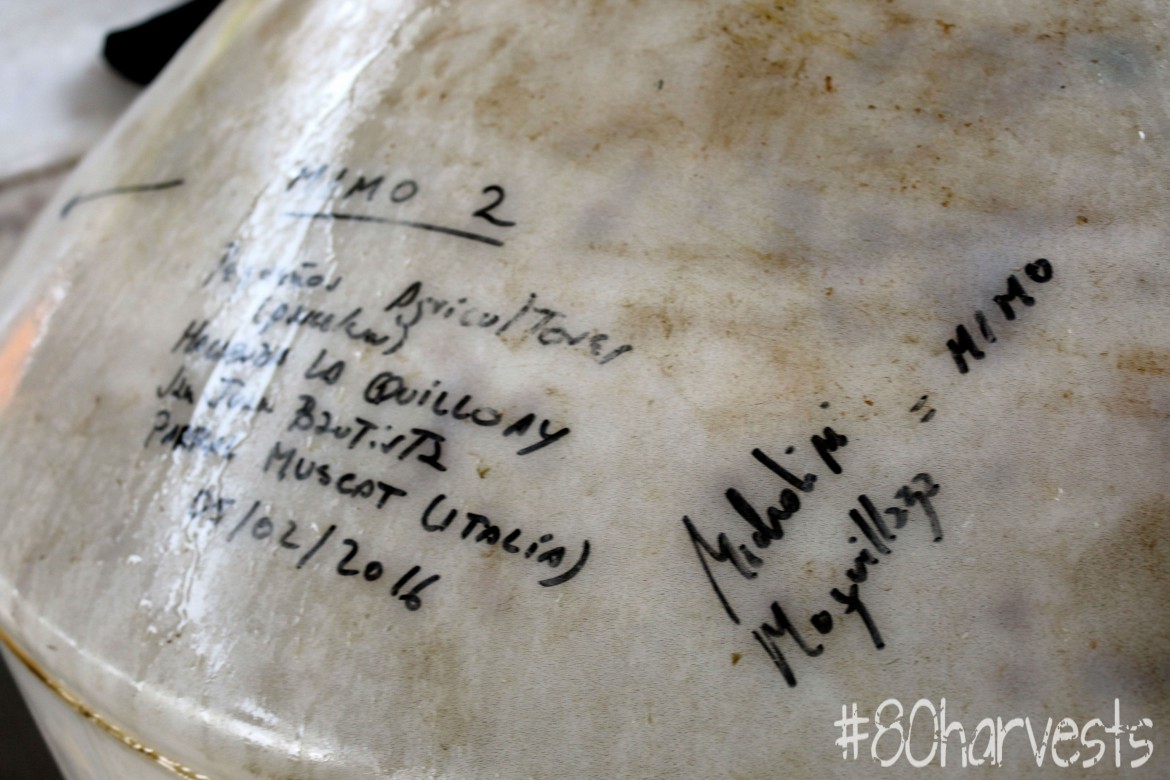 MIMO 2
Pequeños Agricultores
HACIENDA LA QUILLOAY
San Juan BAUTISTA
MUSCAT (ITALIA)
05/02/2016
Michelini = MIMO
Moquillaza
#80harvests